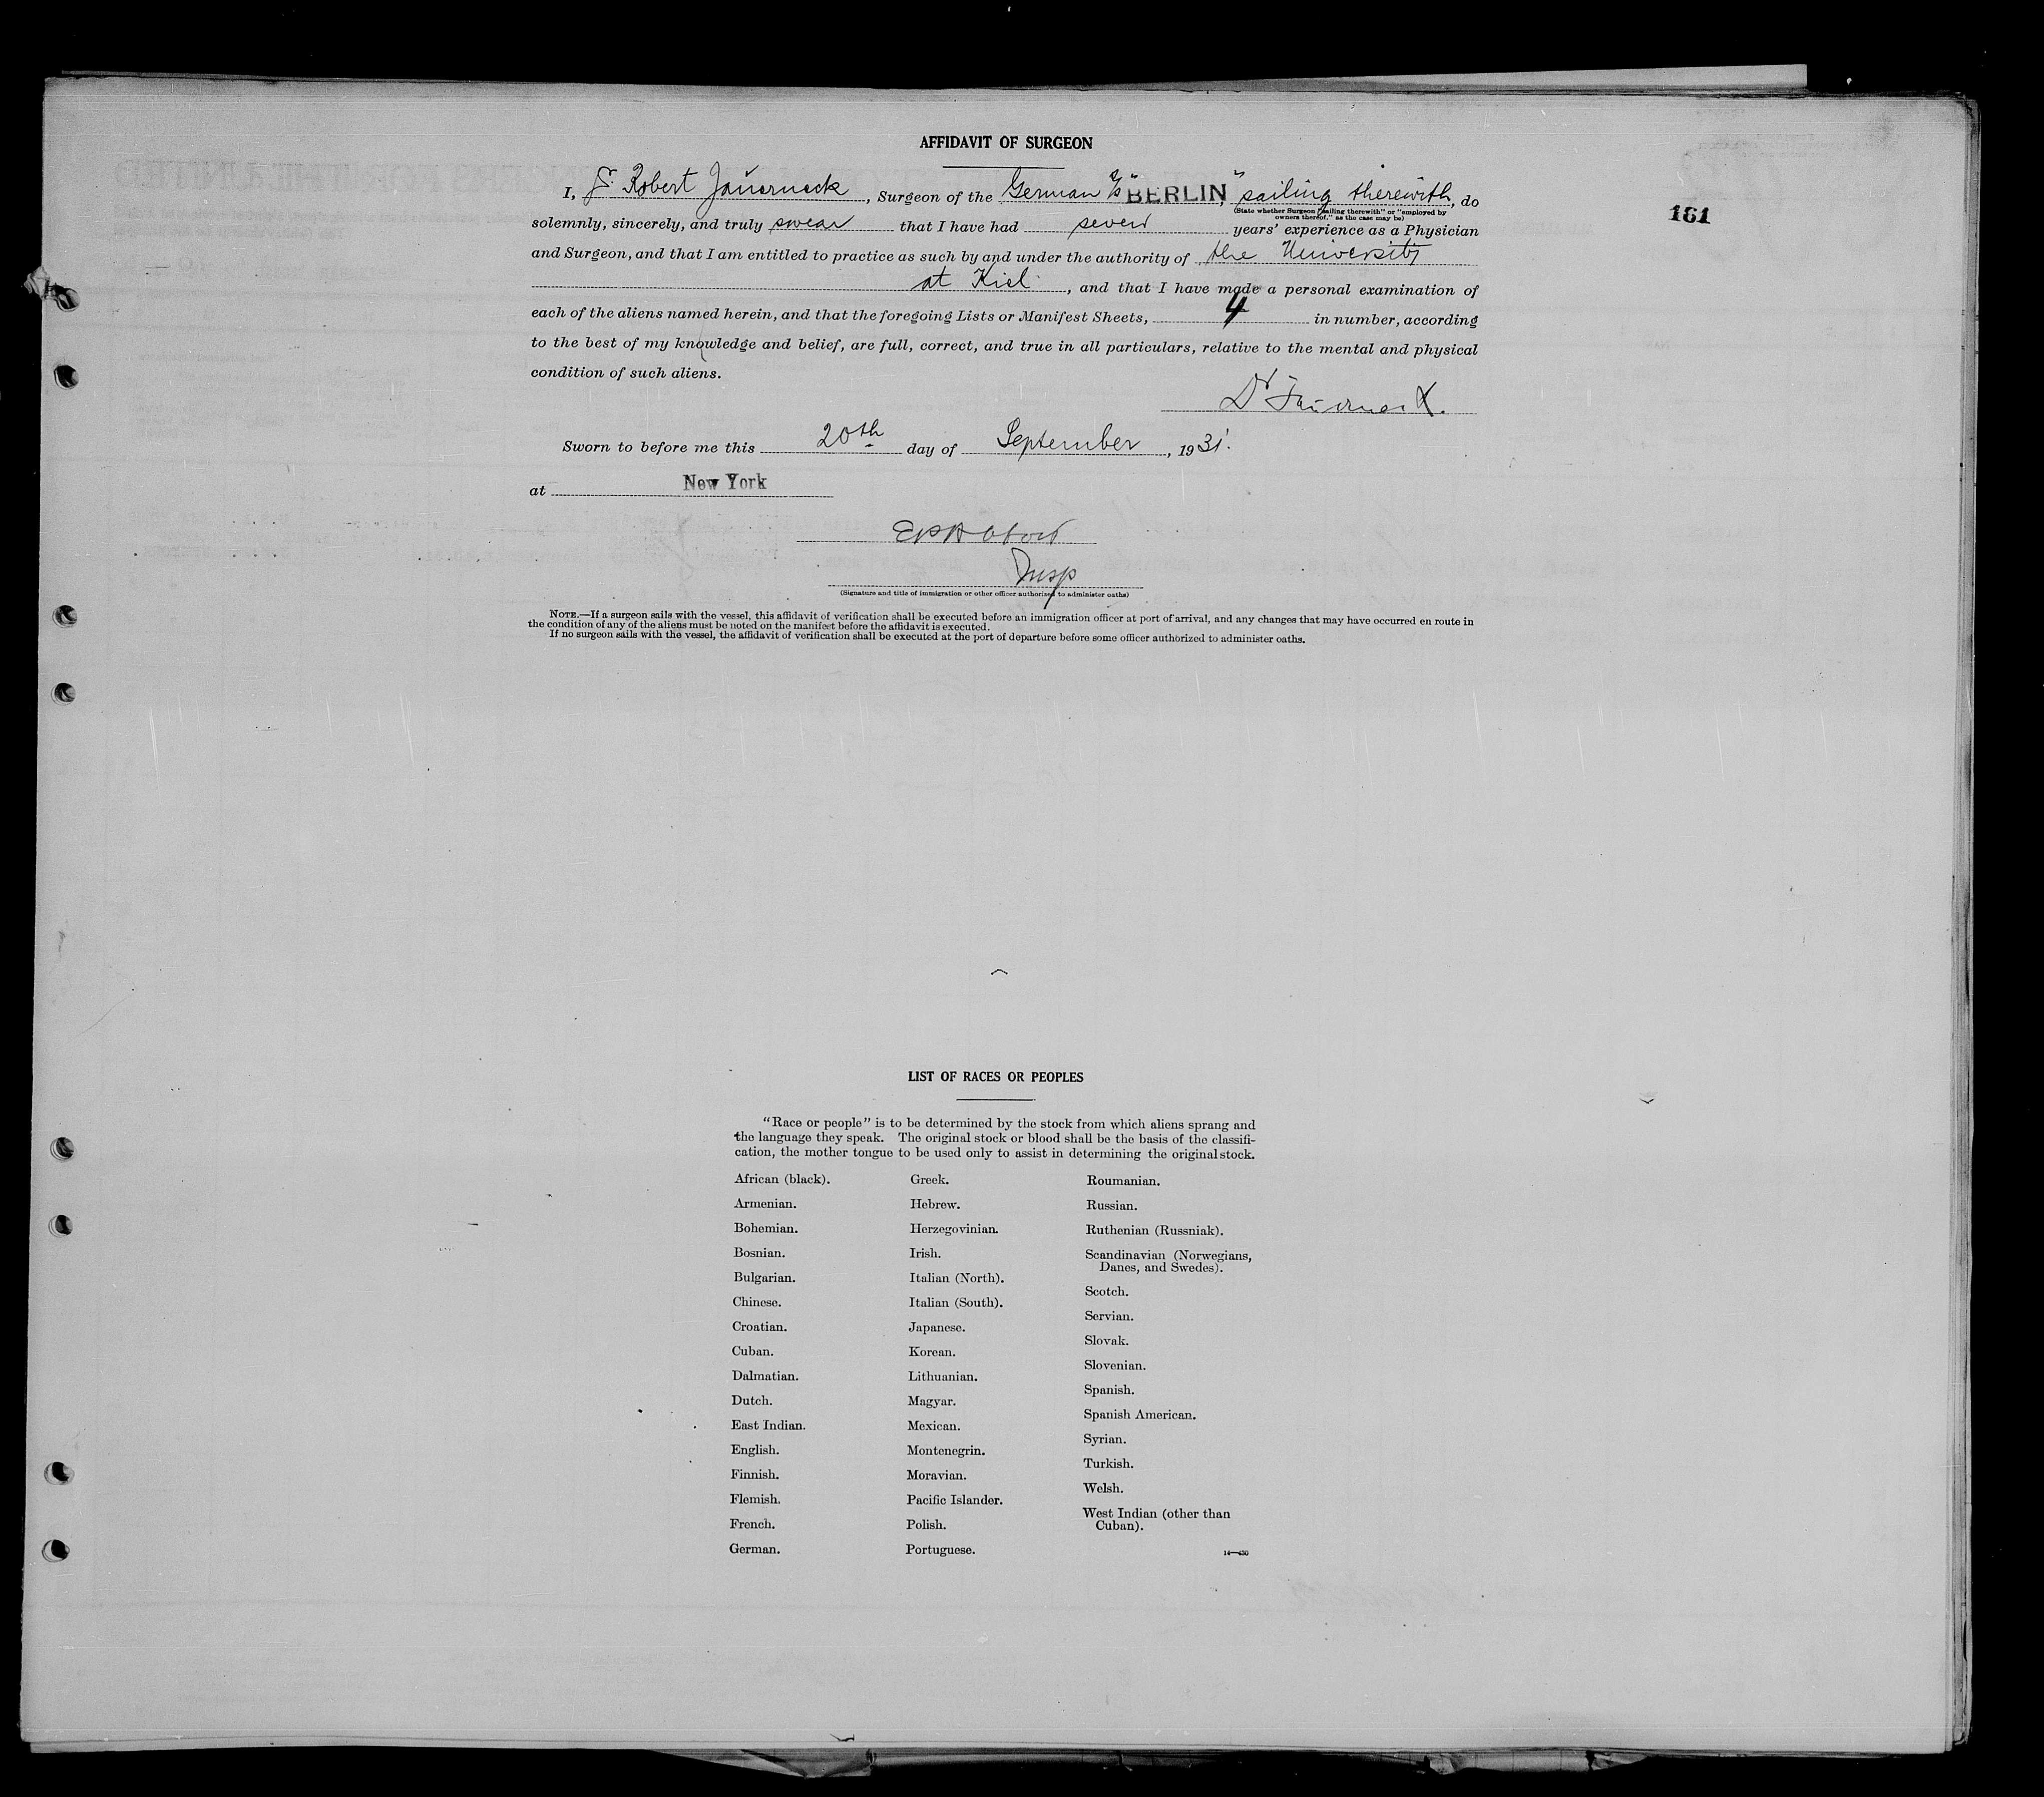 AFFIDAVIT OF SURGEON
I, Dr. Robert Jauerneck, Surgeon of the German S/S "BERLIN," sailing therewith, do
(State whether Surgeon "sailing therewith" or "employed by
owners thereof," as the case may be)
181
solemnly, sincerely, and truly swear that I have had seven years' experience as a Physician
and Surgeon, and that I am entitled to practice as such by and under the authority of the University
at Kiel, and that I have made a personal examination of
each of the aliens named herein, and that the foregoing Lists or Manifest Sheets, 4 in number, according
to the best of my knowledge and belief, are full, correct, and true in all particulars, relative to the mental and physical
condition of such aliens.
Dr Jauerneck.
Sworn to before me this 20th day of September, 1931.
at New York
Insp
(Signature and title of immigration or other officer authorized to administer oaths)
NOTE.—If a surgeon sails with the vessel, this affidavit of verification shall be executed before an immigration officer at port of arrival, and any changes that may have occurred en route in
the condition of any of the aliens must be noted on the manifest before the affidavit is executed.
If no surgeon sails with the vessel, the affidavit of verification shall be executed at the port of departure before some officer authorized to administer oaths.
LIST OF RACES OR PEOPLES
"Race or people" is to be determined by the stock from which aliens sprang and
the language they speak. The original stock or blood shall be the basis of the classifi-
cation, the mother tongue to be used only to assist in determining the original stock.
African (black).
Armenian.
Bohemian.
Bosnian.
Bulgarian.
Chinese.
Croatian.
Cuban.
Dalmatian.
Dutch.
East Indian.
English.
Finnish.
Flemish.
French.
German.
Greek.
Hebrew.
Herzegovinian.
Irish.
Italian (North).
Italian (South).
Japanese.
Korean.
Lithuanian.
Magyar.
Mexican.
Montenegrin.
Moravian.
Pacific Islander.
Polish.
Portuguese.
Roumanian.
Russian.
Ruthenian (Russniak).
Scandinavian (Norwegians,
Danes, and Swedes).
Scotch.
Servian.
Slovak.
Slovenian.
Spanish.
Spanish American.
Syrian.
Turkish.
Welsh.
West Indian (other than
Cuban).
14—430